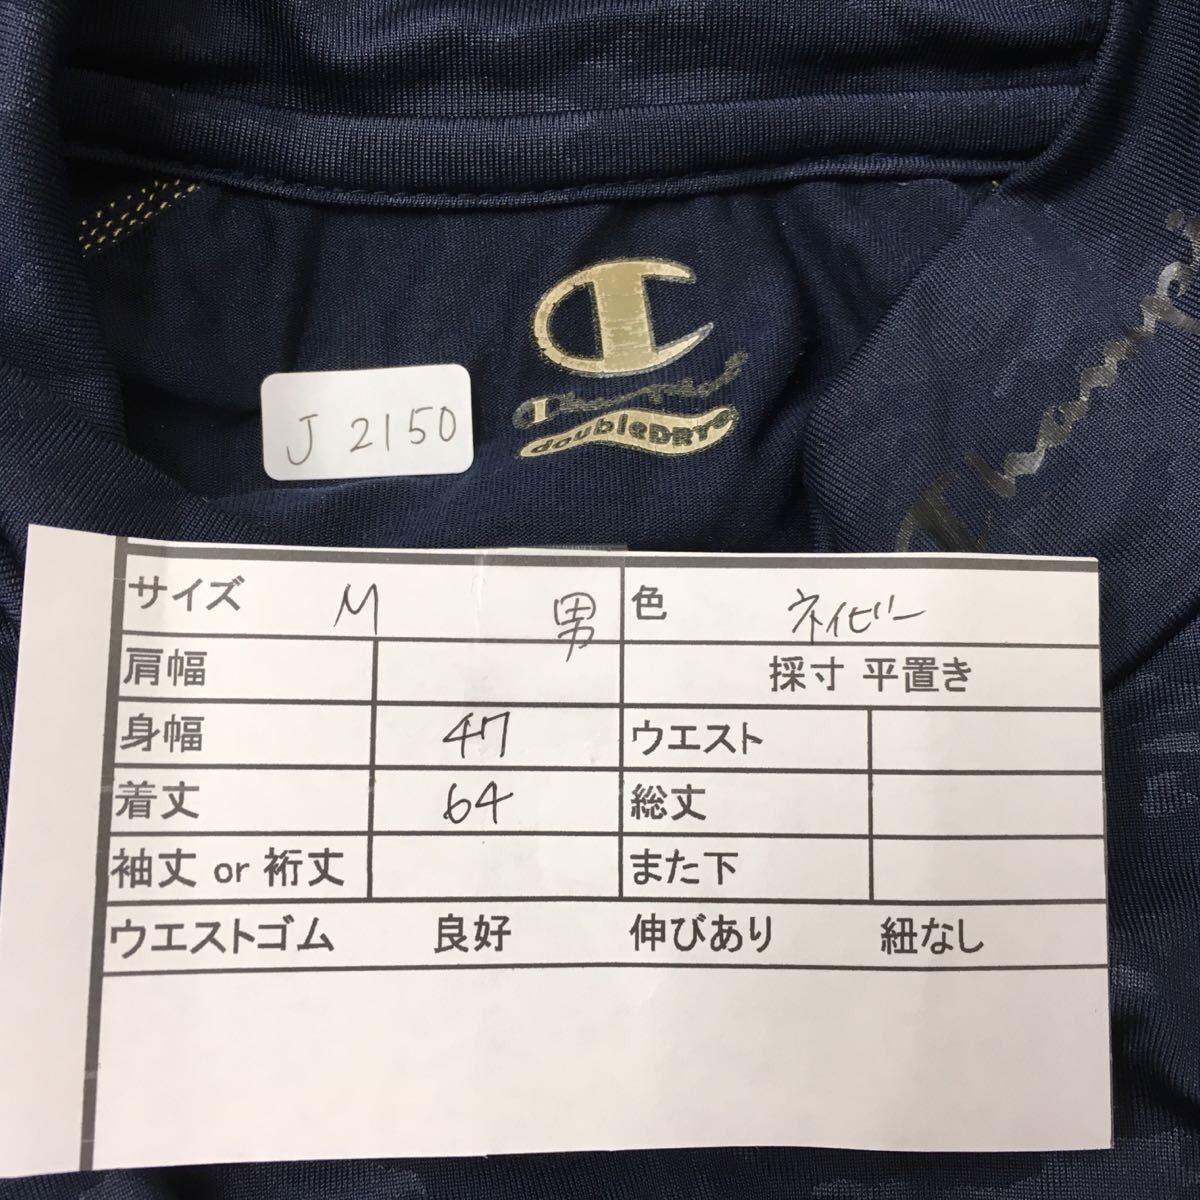 Champion
J 2150
Champion
doubleDRY®
サイズ M 男 色 ネイビー
肩幅 採寸 平置き
身幅 47 ウエスト
着丈 64 総丈
袖丈 or 裄丈 また下
ウエストゴム 良好 伸びあり 紐なし